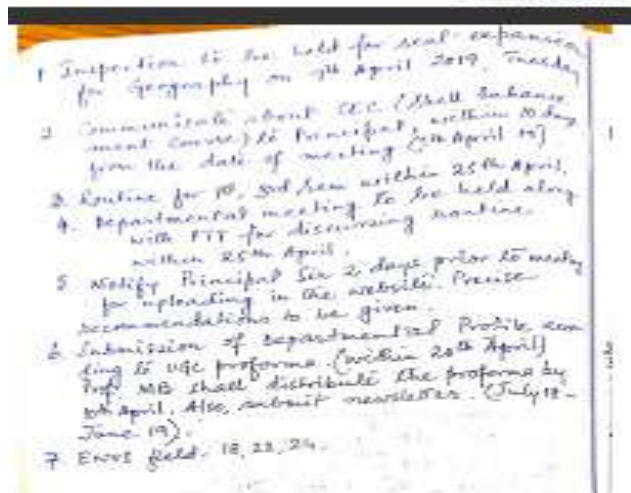 1 Inspection to be held for seat-expansion
for Geography on 9th April 2019, Tuesday
2 Communicate about SEC (Skill Enhance
ment Course) to Principal, within 10 day
from the date of meeting
3. Routine for 1st, 3rd Sem within 25th April.
4. Departmental meeting to be held along
with PTT for discussing routine.
within 25th April.
5 Notify Principal Sir 2 days prior to meeting
for uploading in the website. Precise
recommendations to be given.
6 Submission of Departmental Profile
ding to UGC proforma. (within 20th April)
Prof. MB shall distribute the proforma by
10th April. Also, submit newsletter. (July 18-
June 19).
7 ENVS field- 18, 23, 24.